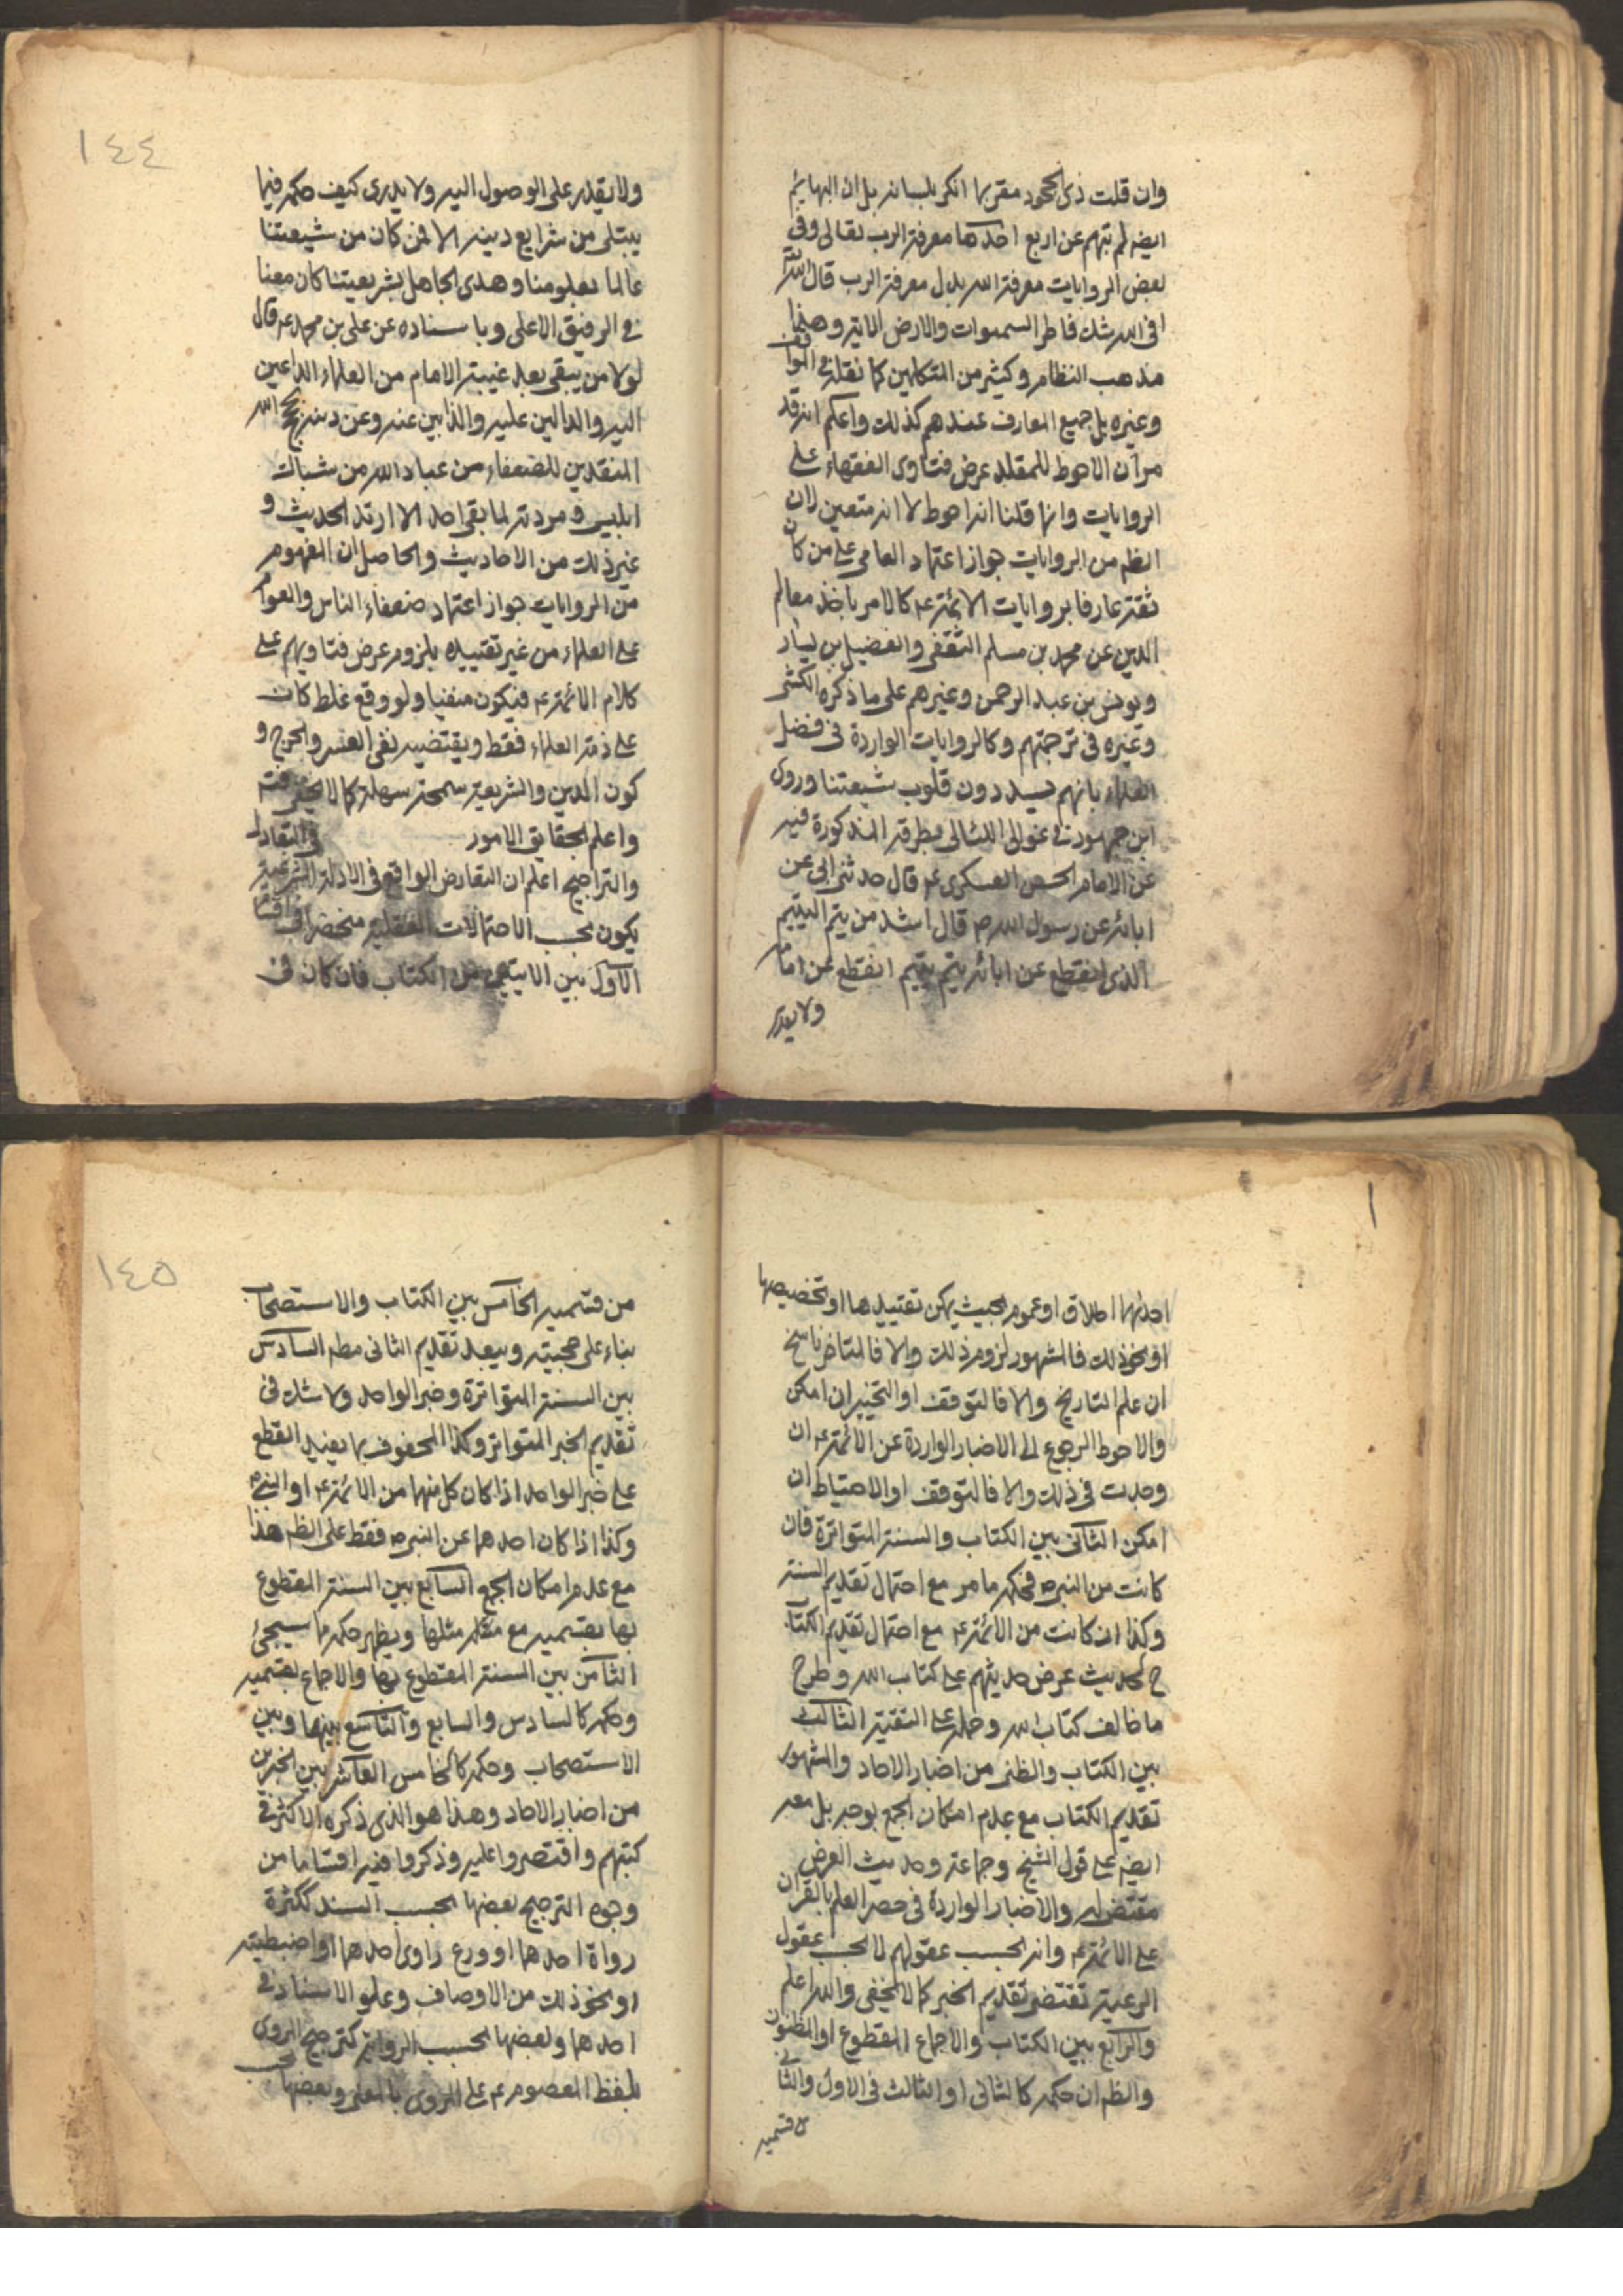 وان قلت ذكي الجحود مقر بها انكر بلسانه بل ان البهايم
ايضه لم تبهم عن اربع احدها معرفة الرب تعالى وفي
بعض الروايات معرفة الله بدل معرفة الرب قال الله تع
افى الله شك فاطر السموات والارض الاية وهذا
مذهب النظام وكثير من المتكلمين كما نقله في المواقف
وغيره بل جميع المعارف عندهم كذلك واعلم انه قد
مر ان الاحوط للمقلد عرض فتاوى الفقهاء على
الروايات وانما قلنا انه احوط لا انه متعين لان
الظم من الروايات جواز اعتماد العامي على من كان
ثقة عارفا بروايات الائمة ع كالامر باخذ معالم
الدين عن محمد بن مسلم الثقفي والفضيل بن يسار
ويونس بن عبد الرحمن وغيرهم على ما ذكره الكشي
وغيره في ترجمتهم وكالروايات الواردة في فضل
العلماء بانهم يسددون قلوب شيعتنا وروى
ابن جمهور في غوالي اللئالي بطرقه المذكورة فيه
عن الامام الحسن العسكري ع قال حدثني ابي عن
ابائه عن رسول الله ص قال اشد من يتم اليتيم
الذي انقطع عن ابائه يتم يتيم انقطع عن امام
ولا يقدر
١٤٤
ولا يقدر على الوصول اليه ولا يدرى كيف حكمه فيما
يبتلى من شرايع دينه الا فمن كان من شيعتنا
عالما بعلومنا وهدى الجاهل بشريعتنا كان معنا
في الرفيق الاعلى وباسناده عن علي بن محمد ع قال
لولا من يبقى بعد غيبة الامام من العلماء الداعين
اليه والدالين عليه والذابين عنه وعن دينه بحجج الله
المنقذين للضعفاء من عباد الله من شباك
ابليس ومردته لما بقي احد الا ارتد الحديث و
غير ذلك من الاحاديث والحاصل ان المفهوم
من الروايات جواز اعتماد ضعفاء الناس والعوام
على العلماء من غير تقييده بلزوم عرض فتاويهم على
كلام الائمة ع فيكون منفيا ولو وقع غلط كان
على ذمة العلماء فقط ويقتضيه نفي العسر والحرج و
كون الدين والشريعة سمحة سهلة كما لا يخفى
واعلم بحقايق الامور في التعادل
والتراجيح اعلم ان التعارض الواقع في الادلة الشرعية
يكون بحسب الاحتمالات العقلية منحصرا في اقسام
الاول بين الايتين من الكتاب فان كان في
احدٰهما اطلاق او عموم بحيث يمكن تقييدها او تخصيصها
او نحو ذلك فالمشهور لزوم ذلك والا فالمتاخر ناسخ
ان علم التاريخ والا فالتوقف او التخيير ان امكن
والاحوط الرجوع الى الاخبار الواردة عن الائمة ع ان
وجدت في ذلك والا فالتوقف او الاحتياط ان
امكن الثاني بين الكتاب والسنة المتواترة فان
كانت من النبي ص فحكمه ما مر مع احتمال تقديم السنة
وكذا ان كانت من الائمة ع مع احتمال تقديم الكتاب
ح لحديث عرض حديثهم على كتاب الله وطرح
ما خالف كتاب الله وحمله على التقية الثالث
بين الكتاب والظني من اخبار الاحاد والمشهور
تقديم الكتاب مع عدم امكان الجمع بوجه بل معه
ايضه على قول الشيخ وجماعة وحديث العرض
مقتض له والاخبار الواردة في حصر العلم بالقران
على الائمة ع وانه بحسب عقولهم لا بحسب عقول
الرعية تقتضي تقديم الخبر كما لا يخفى والله اعلم
والرابع بين الكتاب والاجماع المقطوع او المظنون
والظم ان حكمه كالثاني او الثالث في الاول والثاني
من قسميه
١٤٥
من قسميه الخامس بين الكتاب والاستصحاب
بناء على حجيته ويبعد تقديم الثاني مطم السادس
بين السنة المتواترة وخبر الواحد ولا شك في
تقديم الخبر المتواتر وكذا المحفوف بما يفيد القطع
على خبر الواحد اذا كان كل منهما من الائمة ع او النبي ص
وكذا اذا كان احدهما عن النبي ص فقط على الظم هذا
مع عدم امكان الجمع السابع بين السنة المقطوع
بها بقسميه مع مثلها ويظهر حكمه مما سيجئ
الثامن بين السنة المقطوع بها والاجماع بقسميه
وحكمه كالسادس والسابع والتاسع بينهما وبين
الاستصحاب وحكمه كالخامس العاشر بين الخبرين
من اخبار الاحاد وهذا هو الذي ذكره الاكثر في
كتبهم واقتصروا عليه وذكروا فيه اقساما من
وجوه الترجيح بعضها بحسب السند ككثرة
رواة احدهما او ورع راوي احدهما او اضبطيته
او نحو ذلك من الاوصاف وعلو الاسناد في
احدهما وبعضها بحسب الرواية كترجيح المروى
بلفظ المعصوم ع على المروى بالمعنى وبعضها بحسب